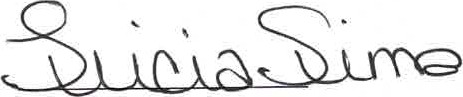 Lucia Sima